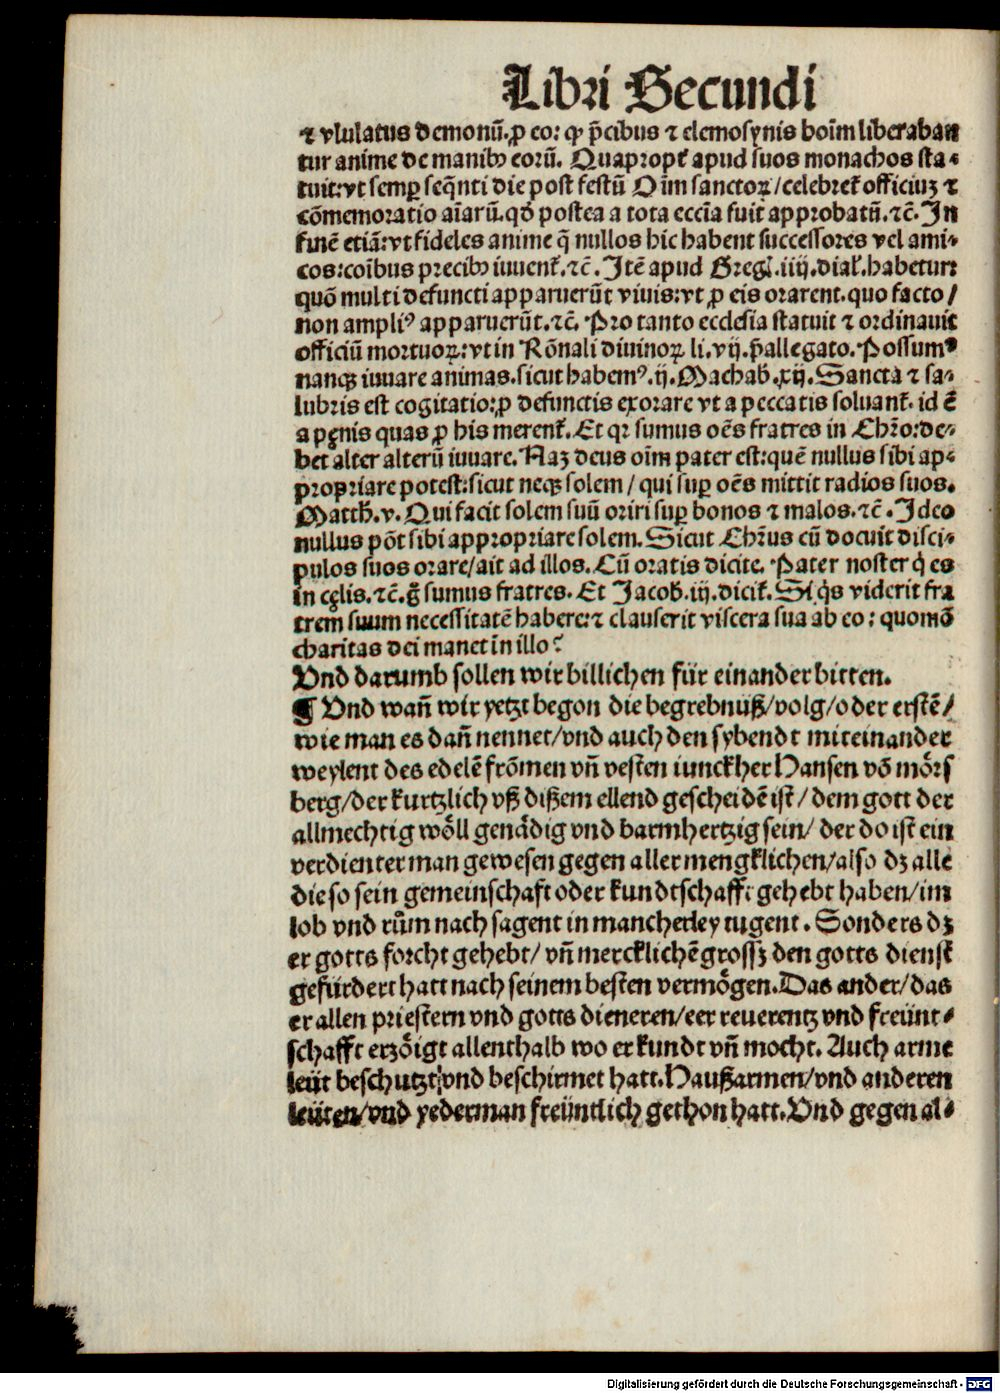 Libri Secundi
⁊ vlulatus demonū.ꝓ eo: ꝙ p̄cibus ⁊ elemosynis hoīm liberaban
tur anime de manibꝰ eorū. Quapropt̄ apud suos monachos sta⸗
tuit:vt semꝑ seq̄nti die post festū Oīm sanctoꝝ/celebret̄ officiuꝫ ⁊
cōmemoratio aīarū.qđ postea a tota ecc̄ia fuit approbatū.⁊c̄. In
finē etiā:vt fideles anime q̄ nullos hic habent successores vel ami⸗
cos:coībus precibꝰ iuuent̄.⁊c̄. Itē apud Greḡ.iiij.dial̄.habetur:
quō multi defuncti apparuerūt viuis:vt ꝓ eis orarent.quo facto/
non ampliꝰ apparuerūt.⁊c̄. Pro tanto ecclesia statuit ⁊ ordinauit
officiū mortuoꝝ:vt in Rōnali diuinoꝝ li.vij.p̄allegato. Possumꝰ
nanqꝫ iuuare animas.sicut habemꝰ.ij.Machab̄.xij. Sancta ⁊ sa⸗
lubris est cogitatio:ꝓ defunctis exorare vt a peccatis soluant̄. id ē
a pęnis quas ꝓ his merent̄. Et qꝛ sumus oēs fratres in Chr̄o:de⸗
bet alter alterū iuuare. Naꝫ deus oīm pater est:quē nullus sibi ap⸗
propriare potest:sicut neqꝫ solem/ qui suꝑ oēs mittit radios suos.
Matth̄.v. Qui facit solem suū oriri suꝑ bonos ⁊ malos.⁊c̄. Ideo
nullus pōt sibi appropriare solem. Sicut Chr̄us cū docuit disci⸗
pulos suos orare/ait ad illos. Cū oratis dicite. Pater noster q̇ es
in cęlis.⁊c̄.g̊ sumus fratres. Et Jacob̄.iij.dicit̄. Si q̇s viderit fra
trem suum necessitatē habere:⁊ clauserit viscera sua ab eo: quomō
charitas dei manet in illo?
Vnd darumb sollen wir billichen für einander bitten.
¶ Vnd wañ wir yetzt begon die begrebnuß/volg/oder erstē/
wie man es dañ nennet/vnd auch den sybendt miteinander
weylent des edelē frōmen vñ vesten iunckher Hansen vō moͤrs
berg/der kurtzlich vß dißem ellend gescheidē ist/ dem gott der
allmechtig woͤll genaͤdig vnd barmhertzig sein/ der do ist ein
verdienter man gewesen gegen aller mengklichen/also dz alle
die so sein gemeinschaft oder kundtschafft gehebt haben/im
lob vnd ruͦm nach sagent in mancherley tugent. Sonders dz
er gotts forcht gehebt/ vñ mercklichē grossz den gotts dienst
gefürdert hatt nach seinem besten vermoͤgen. Das ander/das
er allen priestern vnd gotts dieneren/eer reuerentz vnd freünt⸗
schafft erzoͤigt allenthalb wo er kundt vñ mocht. Auch arme
leüt beschutzt/vnd beschirmet hatt. Haußarmen/vnd anderen
leüten/vnd yederman freüntlich gethon hatt. Vnd gegen al⸗
Digitalisierung gefördert durch die Deutsche Forschungsgemeinschaft - DFG